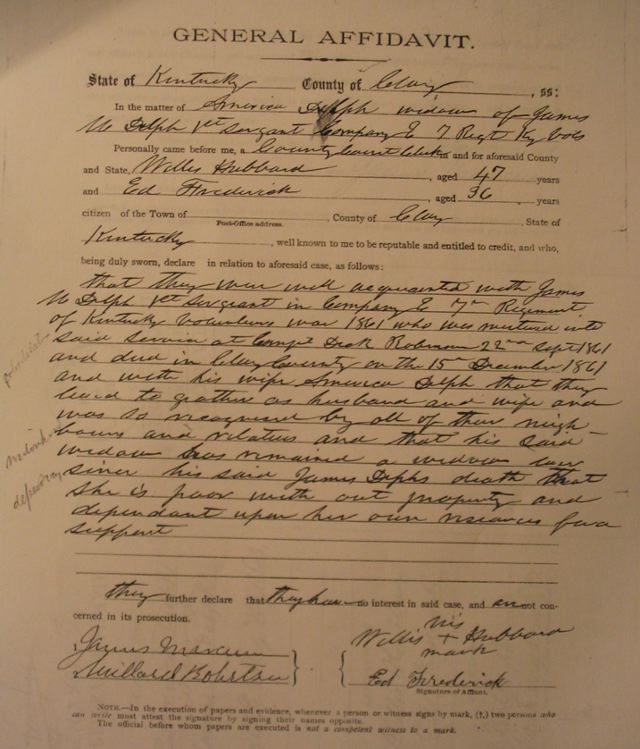 GENERAL AFFIDAVIT.
State of Kentucky County of Clay, ss:
In the matter of America Delph widow of James
M Delph 1st Sergant Company E 7 Regt Ky Vols
Personally came before me, a County Court Clerk in and for aforesaid County
and State, Willis Hubbard, aged 47 years
and Ed Frederick, aged 36, years
citizen of the Town of , County of Clay, State of
Post-Office address.
Kentucky, well known to me to be reputable and entitled to credit, and who,
being duly sworn, declare in relation to aforesaid case, as follows:
that they were well acquainted with James
M Delph 1st Sergant in Company E 7th Regiment
of Kentucky Volunteers war 1861 who was mustered into
said service at Camp Dick Robinson 22nd Sept 1861
and died in Clay County on the 15th December 1861
and with his wife America Delph that they
lived to gather as husband and wife and
was so recognized by all of their neigh-
bours and relatives and that his said
widow has remained a widow ever
since his said James Delphs death that
she is poor with out property and
dependant upon her own resources for a
support
they further declare that they have no interest in said case, and are not con-
cerned in its prosecution.
his
Willis + Hubbard
mark
James
Millard Robertson
Ed Frederick
Signature of Affiant.
NOTE.—In the execution of papers and evidence, whenever a person or witness signs by mark, (†,) two persons who
can write must attest the signature by signing their names opposite.
The official before whom papers are executed is not a competent witness to a mark.